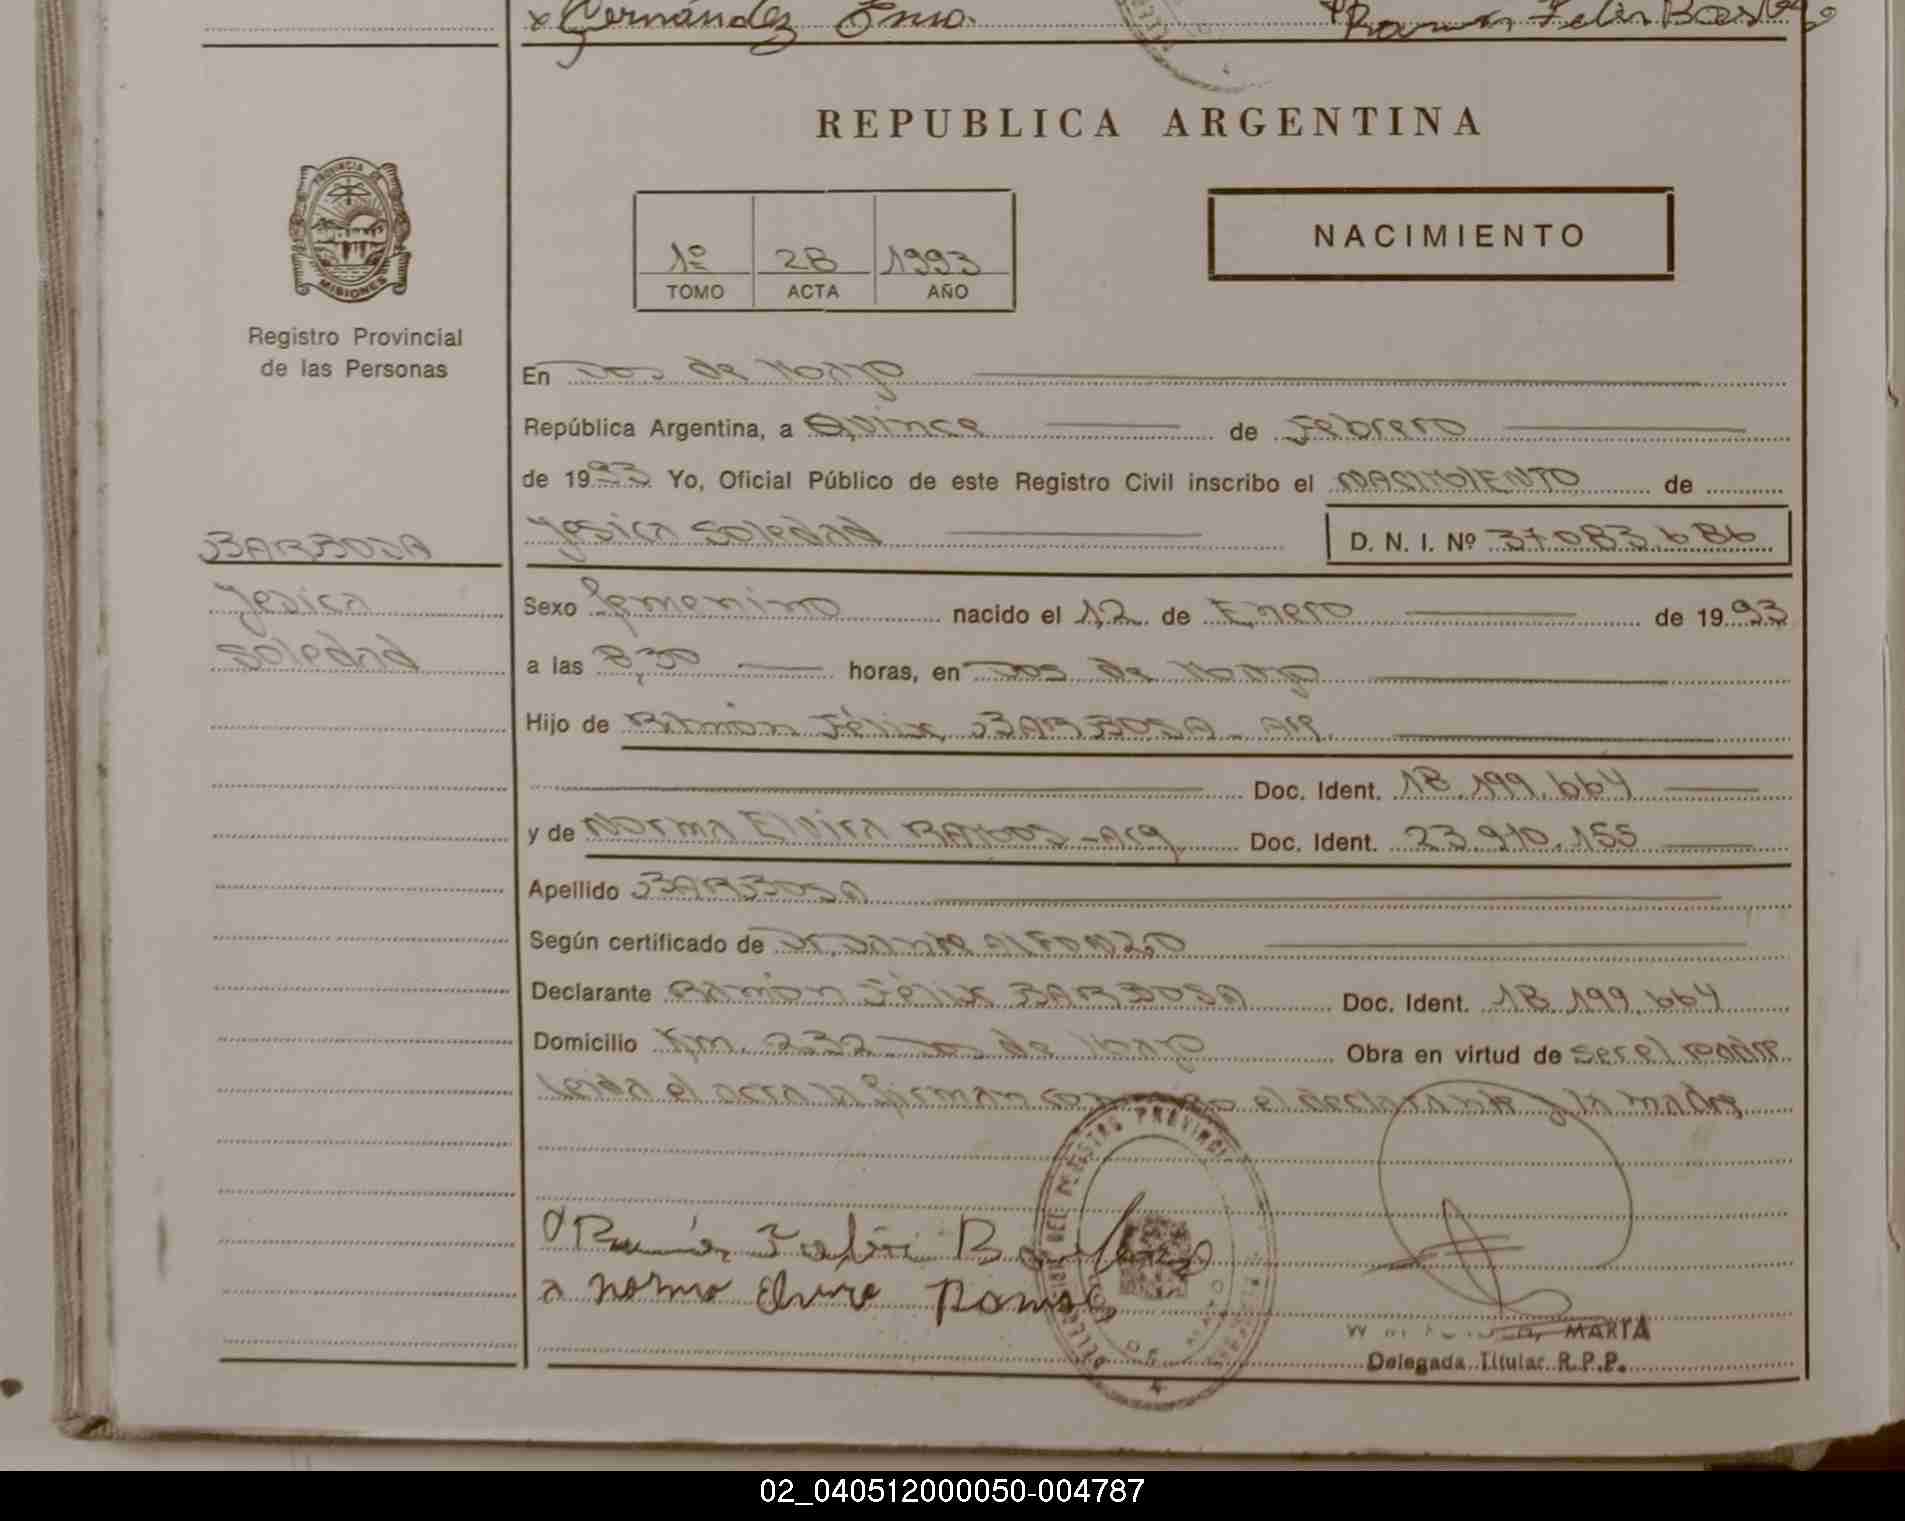 x Fernández Enso.
Ramón Felix Barboza
REPUBLICA ARGENTINA
PROVINCIA DE
MISIONES
Registro Provincial
de las Personas
1º 28 1993
TOMO ACTA AÑO
NACIMIENTO
En Dos de Mayo
República Argentina, a Quince de Febrero
de 1993 Yo, Oficial Público de este Registro Civil inscribo el NACIMIENTO de
Yesica Soledad D. N. I. Nº 37.083.686
BARBOSA
Yesica
Soledad
Sexo femenino nacido el 12 de Enero de 1993
a las 8,30 horas, en Dos de Mayo
Hijo de Ramón Félix BARBOSA - Arg.
Doc. Ident. 18.199.664
y de Norma Elvira RAMOS - Arg. Doc. Ident. 23.910.155
Apellido BARBOSA
Según certificado de Dr. Dante ALFONZO
Declarante Ramón Félix BARBOSA Doc. Ident. 18.199.664
Domicilio Km. 232 Dos de Mayo Obra en virtud de ser el padre
Leida el acta la firman conmigo el declarante y la madre
DEL REGISTRO PROVINCIAL
Ramón Felix Barboza
Norma Elvira Ramos
MARTA
Delegada Titular R.P.P.
02_040512000050-004787